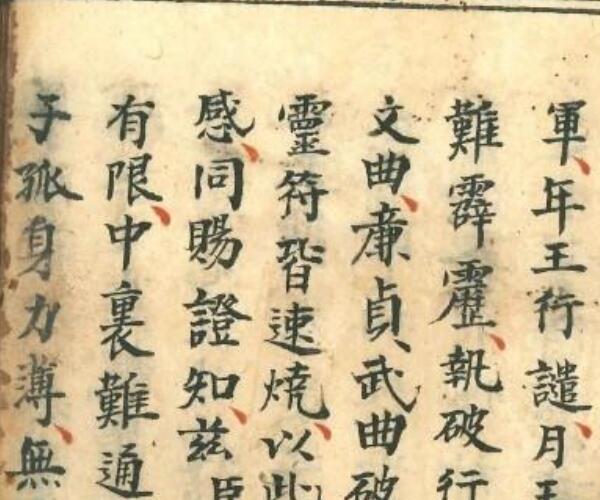 軍、年王行譴、月王
難霹靂、執破行
文曲、廉貞、武曲破
靈符皆速燒、以此
感、同賜證知、兹臣
有限、中裏難通
子孤身力薄、無